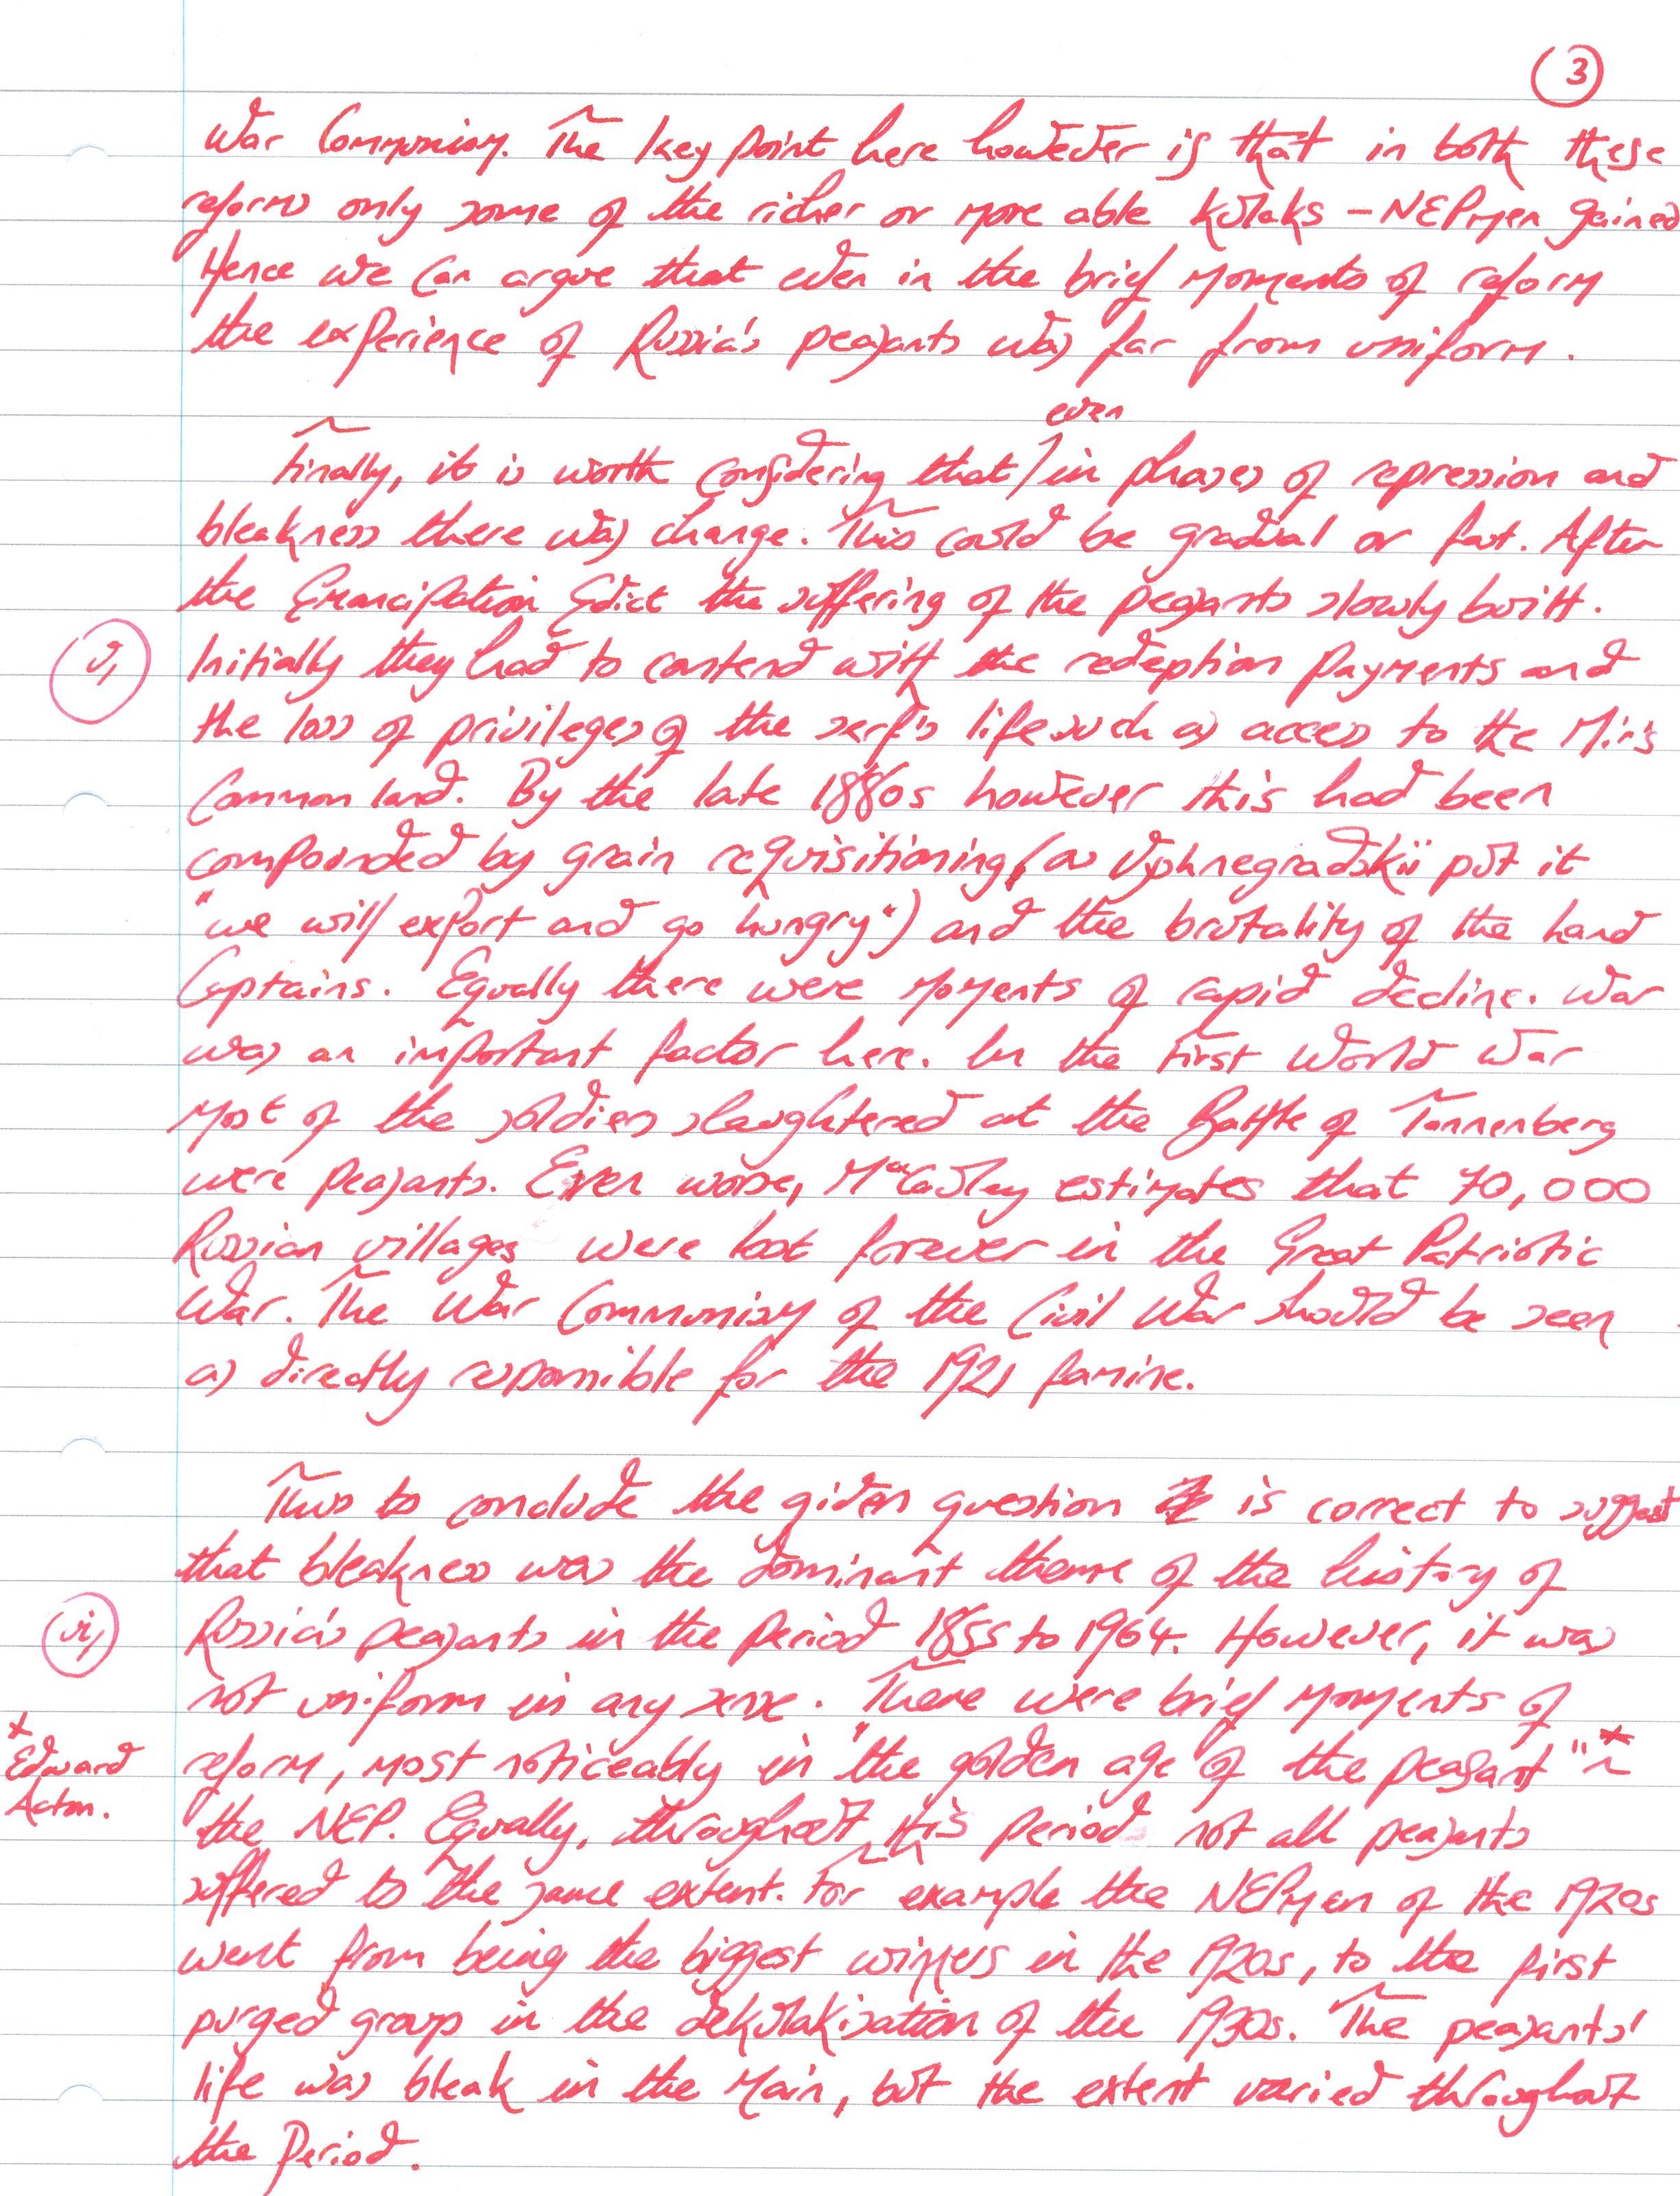 3
War Communism. The key point here however is that in both these
reforms only some of the richer or more able Kulaks – NEPmen gained
Hence we can argue that even in the brief moments of reform
the experience of Russia's peasants was far from uniform.
even
Finally, it is worth considering that / in phases of repression and
bleakness there was change. This could be gradual or fast. After
the Emancipation Edict the suffering of the peasants slowly built.
v,
Initially they had to contend with the redeption payments and
the loss of privileges of the serf's life such as access to the Mir's
common land. By the late 1880s however this had been
compounded by grain requisitioning, (as Vyshnegradskii put it
"we will export and go hungry") and the brutality of the hand
Captains. Equally there were moments of rapid decline. War
was an important factor here. In the First World War
most of the soldiers slaughtered at the Battle of Tannenberg
were peasants. Even worse, MacCauley estimates that 70,000
Russian villages were lost forever in the Great Patriotic
War. The War Communism of the Civil War should be seen
as directly responsible for the 1921 famine.
Thus to conclude the given question is correct to suggest
that bleakness was the dominant theme of the history of
vi,
Russia's peasants in the period 1855 to 1964. However, it was
not uniform in any sense. There were brief moments of
reform, most noticeably in "the golden age of the peasant" * ~
* Edward
Acton.
the NEP. Equally, throughout this period not all peasants
suffered to the same extent. For example the NEPmen of the 1920s
went from being the biggest winners in the 1920s, to the first
purged group in the dekulakisation of the 1930s. The peasants'
life was bleak in the main, but the extent varied throughout
the period.